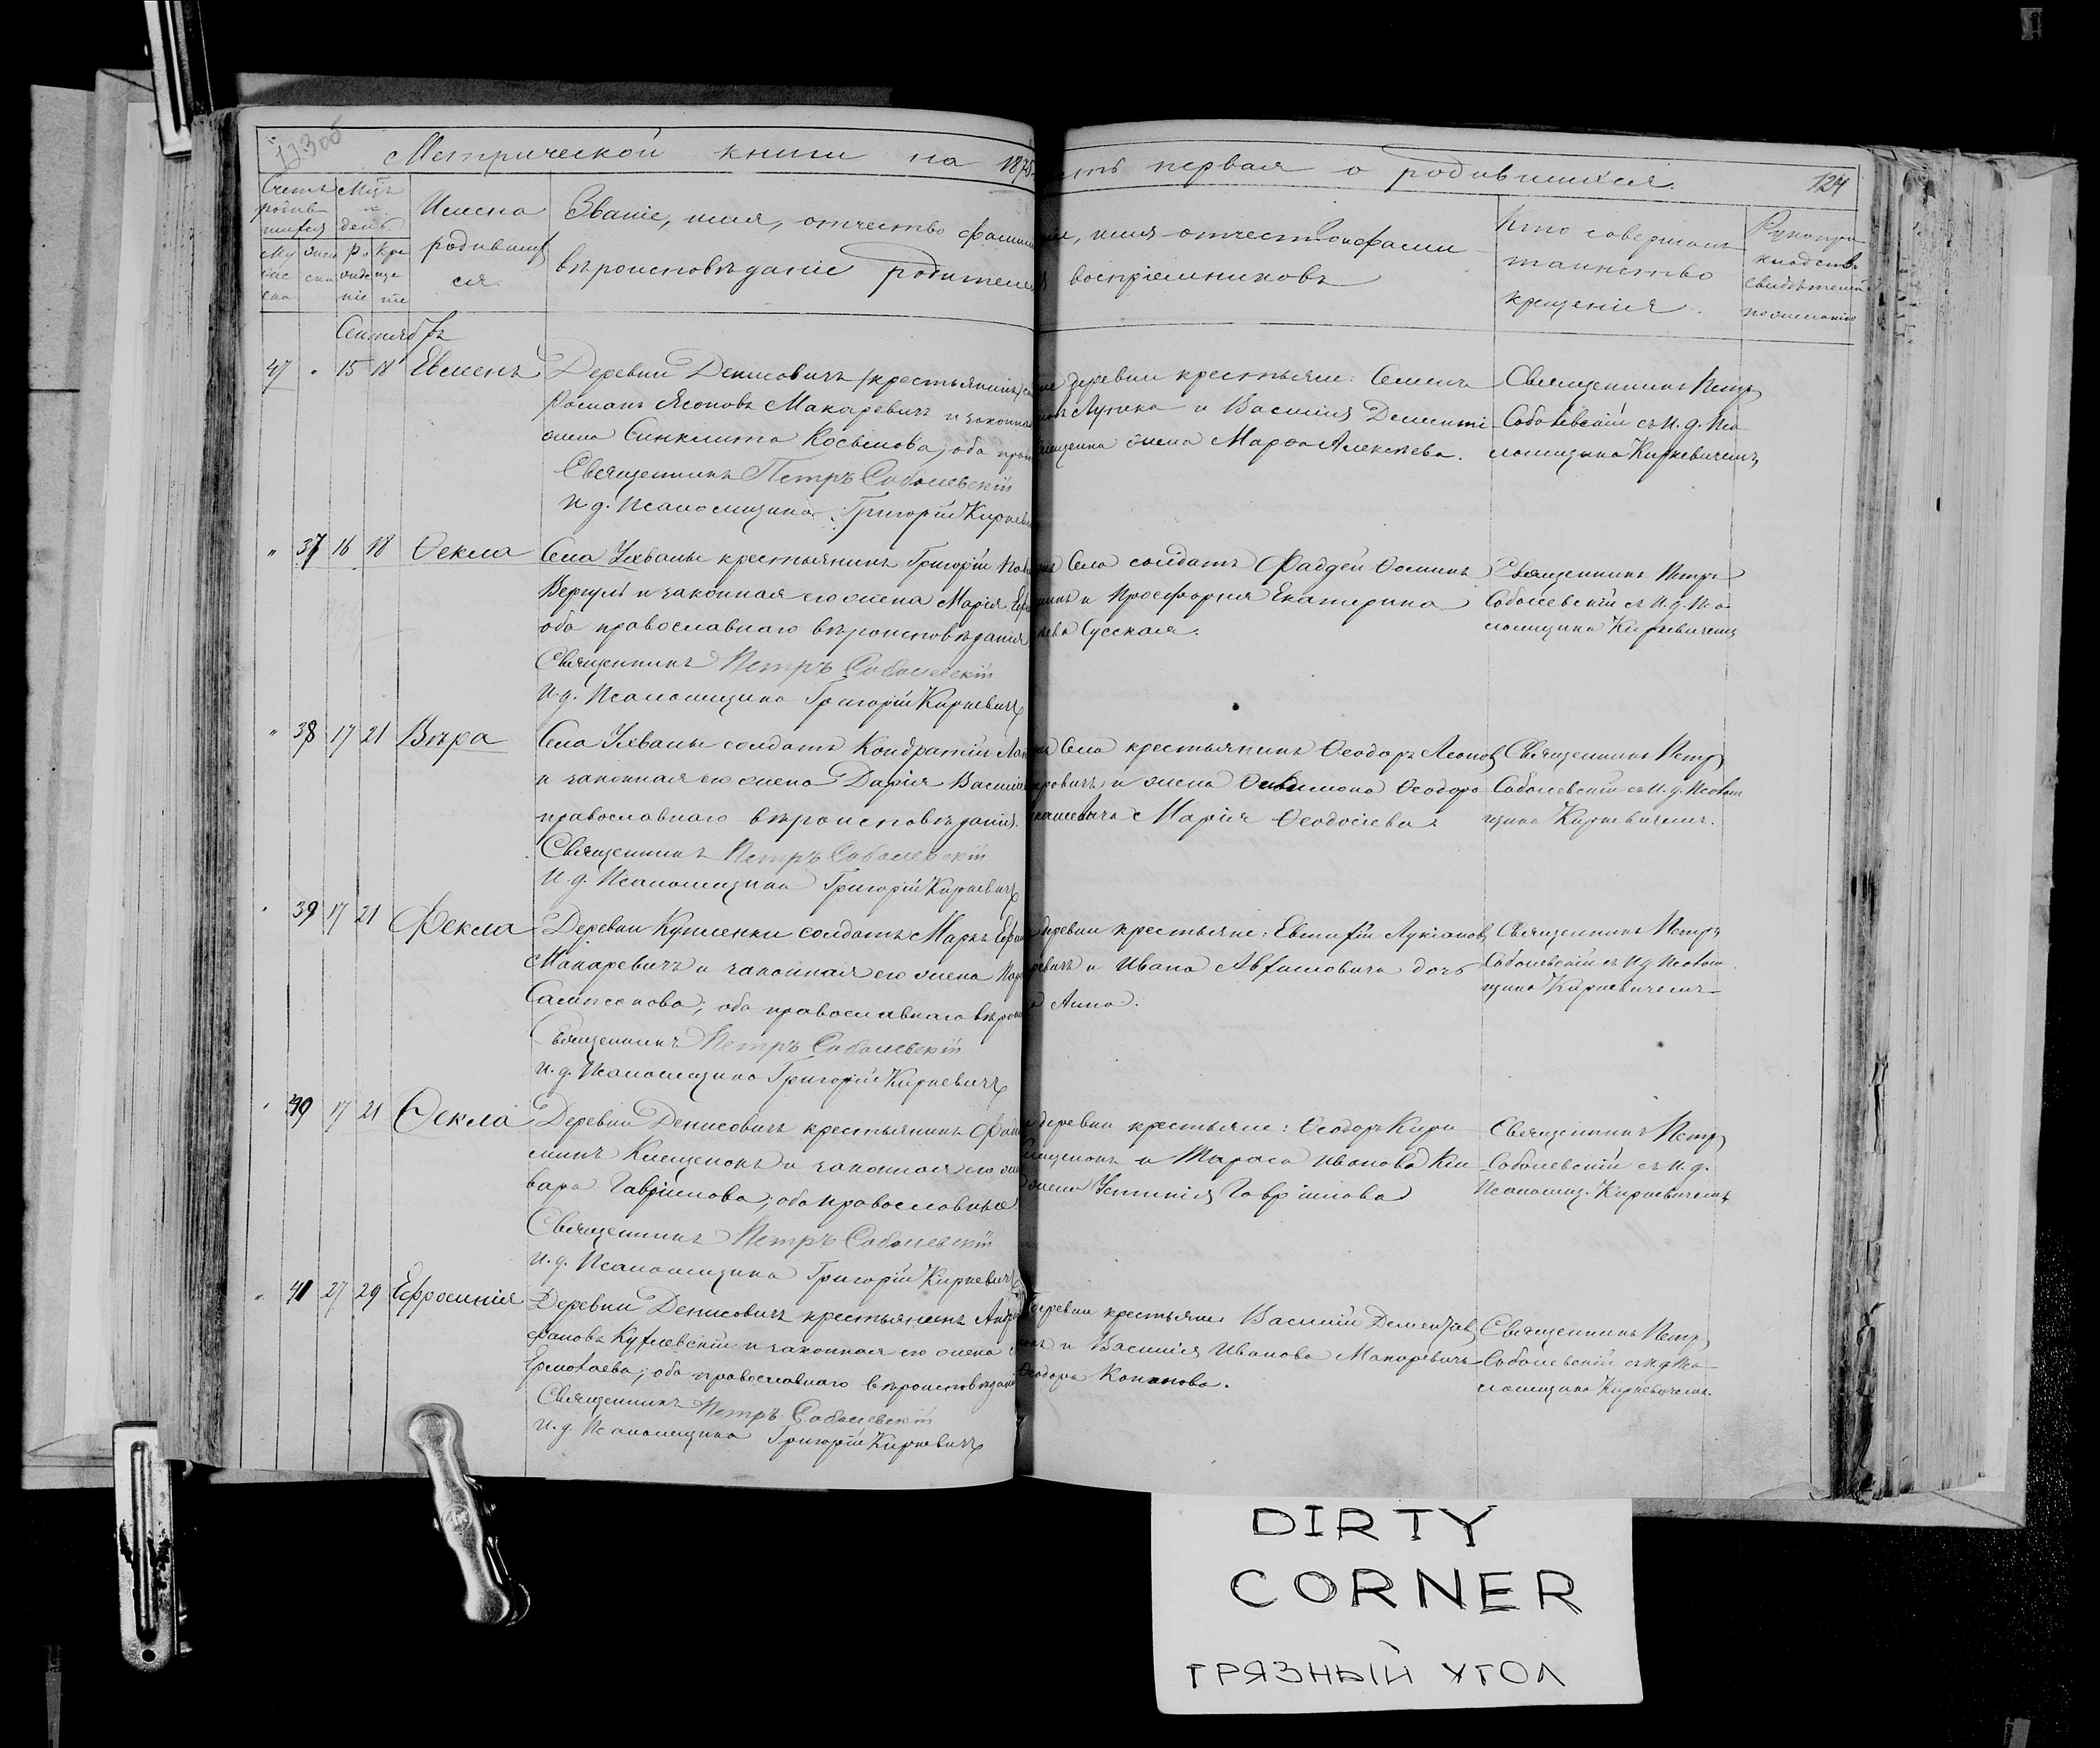 123об
Метрической книги на 1875
сть первая о родившихся.
124
Счетъ родив
шихся
Мцъ
и
день.
Му
жес
ска
жен
ска
Ро
жде
ніе
Кре
ще
ніе
Имена
родивших
ся.
Званіе, имя, отчество фамилі
вѣроисповѣданіе родителей
імя отчество и фами
воспріемниковъ
Кто совершалъ
таинство
крещенія.
Рукопри
кладств
свидѣтелей
по желанію
Сентябрь
47 " 15 18 Евменъ
Деревни Денисовичъ крестьянинъ
Романъ Ясоновъ Макаревичъ и законная
жена Синклита Косьмова; оба
Священникъ Петръ Соболевскій
И. д. Псаломщика Григорій Киркеви
деревни крестьяне: Семенъ
Лупика и Василія Дементі
жена Марѳа Алексѣева.
Священникъ Петръ
Соболевскій съ И. д. Пса
ломщика Киркевичемъ
" 37 16 18 Ѳекла
Села Ухвалы крестьянинъ Григорій
и законная его жена Марія
оба православнаго вѣроисповѣданія
Священникъ Петръ Соболевскій
И. д. Псаломщика Григорій Киркевичъ
Села солдатъ Фаддей Ѳоминъ
и Просфорня Екатерина
Сусская.
Священникъ Петръ
Соболевскій съ И. д. Пса
ломщика Киркевичемъ
" 38 17 21 Вѣра
Села Ухвалы солдатъ Кондратій
и законная его жена Дарія Васил
православнаго вѣроисповѣданія.
Священникъ Петръ Соболевскій
И. д. Псаломщика Григорій Киркевичъ
Села крестьянинъ Ѳеодоръ Леонов
и жена Ѳеодоро
Марія Ѳеодосіева.
Священникъ Петръ
Соболевскій съ И. д. Псалом
щика Киркевичемъ.
" 39 17 21 Фекла
Деревни Купленки солдатъ Маркъ
Макаревичъ и законная его жена
Сампсонова; оба православнаго вѣрои
Священникъ Петръ Соболевскій
И. д. Псаломщика Григорій Киркевичъ
деревни крестьяне: Евтифій Лукіановъ
и Ивана дочь
Анна.
Священникъ Петръ
Соболевскій съ И. д. Псалом
щика Киркевичемъ
" 40 17 21 Ѳекла
Деревни Денисовичъ крестьянинъ
Клещенокъ и законная его же
вара Гавріилова; оба православные.
Священникъ Петръ Соболевскій
И. д. Псаломщика Григорій Киркевичъ
деревни крестьяне: Ѳеодоръ Кири
и Тараса Иванова Кле
жена Устинія Гавріилова
Священникъ Петръ
Соболевскій съ И. д.
Псаломщ. Киркевичемъ
" 41 27 29 Ефросинія
Деревни Денисовичъ крестьянинъ
и законная его жена
Ермолаева; оба православнаго вѣроисповѣданія
Священникъ Петръ Соболевскій
И. д. Псаломщика Григорій Киркевичъ
деревни крестьяне Василій
и Василія Иванова Макаревича
Ѳеодора Кононова.
Священникъ Петръ
Соболевскій съ И. д. Пса
ломщика Киркевичемъ.
DIRTY
CORNER
ГРЯЗНЫЙ УГОЛ